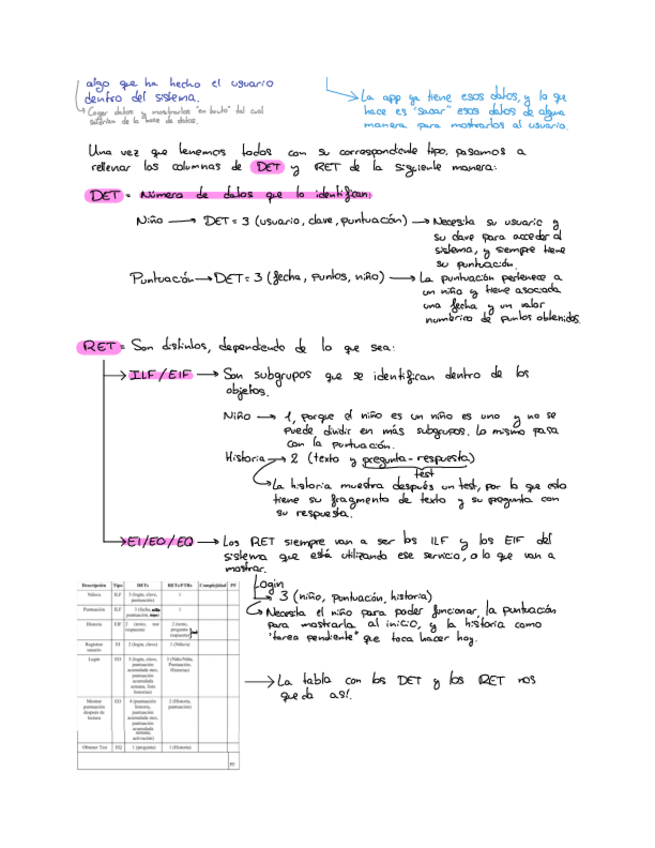 algo que ha hecho el usuario
dentro del sistema.
Coger datos y mostrarlos "en bruto" tal cual
saldrían de la base de datos.
La app ya tiene esos datos, y lo que
hace es "sacar" esos datos de alguna
manera para mostrarlos al usuario.
Una vez que tenemos todos con su correspondiente tipo, pasamos a
rellenar las columnas de DET y RET de la siguiente manera:
DET = Número de datos que lo identifican:
Niño → DET = 3 (usuario, clave, puntuación) → Necesita su usuario y
su clave para acceder al
sistema, y siempre tiene
su puntuación.
Puntuación → DET = 3 (fecha, puntos, niño) → La puntuación pertenece a
un niño y tiene asociada
una fecha y un valor
numérico de puntos obtenidos.
RET = Son distintos, dependiendo de lo que sea:
ILF / EIF → Son subgrupos que se identifican dentro de los
objetos.
Niño → 1, porque el niño es un niño es uno y no se
puede dividir en más subgrupos. Lo mismo pasa
con la puntuación.
Historia → 2 (texto y pregunta-respuesta)
test
La historia muestra después un test, por lo que esto
tiene su fragmento de texto y su pregunta con
su respuesta.
EI/EO/EQ → Los RET siempre van a ser los ILF y los EIF del
sistema que está utilizando ese servicio, o lo que van a
mostrar.
Login
3 (niño, puntuación, historia)
Necesita el niño para poder funcionar, la puntuación
para mostrarla al inicio, y la historia como
"tarea pendiente" que toca hacer hoy.
Descripción Tipo DETs RETs/FTRs Complejidad PF
Niño/a ILF 3 (login, clave, puntuación) 1
Puntuación ILF 3 (fecha, puntuación, 1
Historia EIF 2 (texto, test respuesta) 2 (texto, pregunta respuesta)
Registrar usuario EI 2 (login, clave) 1 (Niño/a)
Login EO 5 (login, clave, puntuación acumulada mes, puntuación acumulada semana, lista historias) 3 (Niño/Niña, Puntuación, Historias)
Mostrar puntuación después de lectura EO 4 (puntuación historia, puntuación acumulada mes, puntuación acumulada semana, activación) 2 (Historia, puntuación)
Obtener Test EQ 1 (pregunta) 1 (Historia)
PF
La tabla con los DET y los RET nos
queda así.